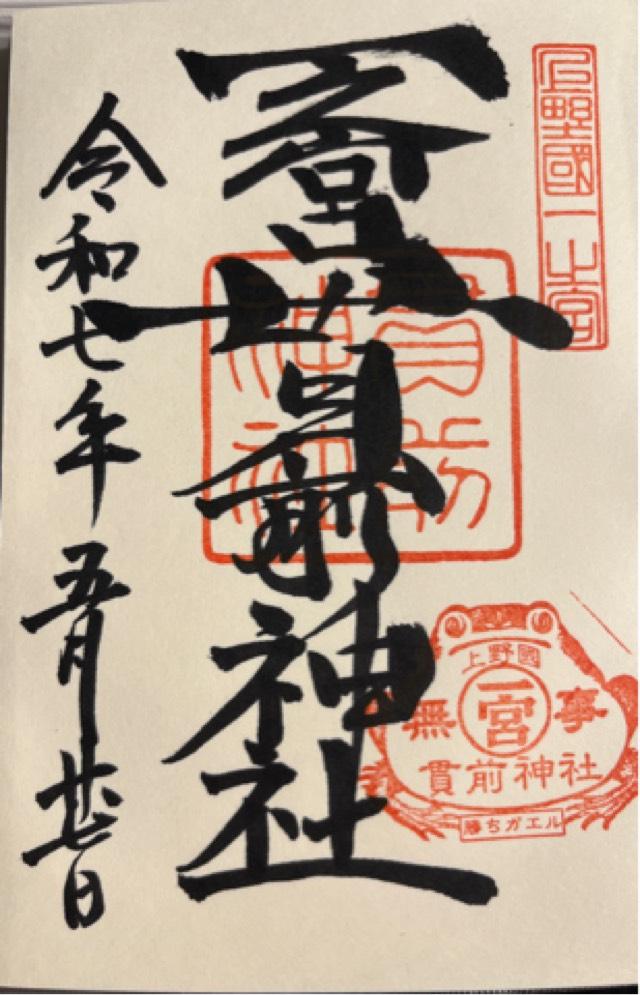 上野國一之宮
一之宮貫前神社
貫前
神社
上野國
無 一宮 事
貫前神社
勝ちガエル
令和七年五月廿七日